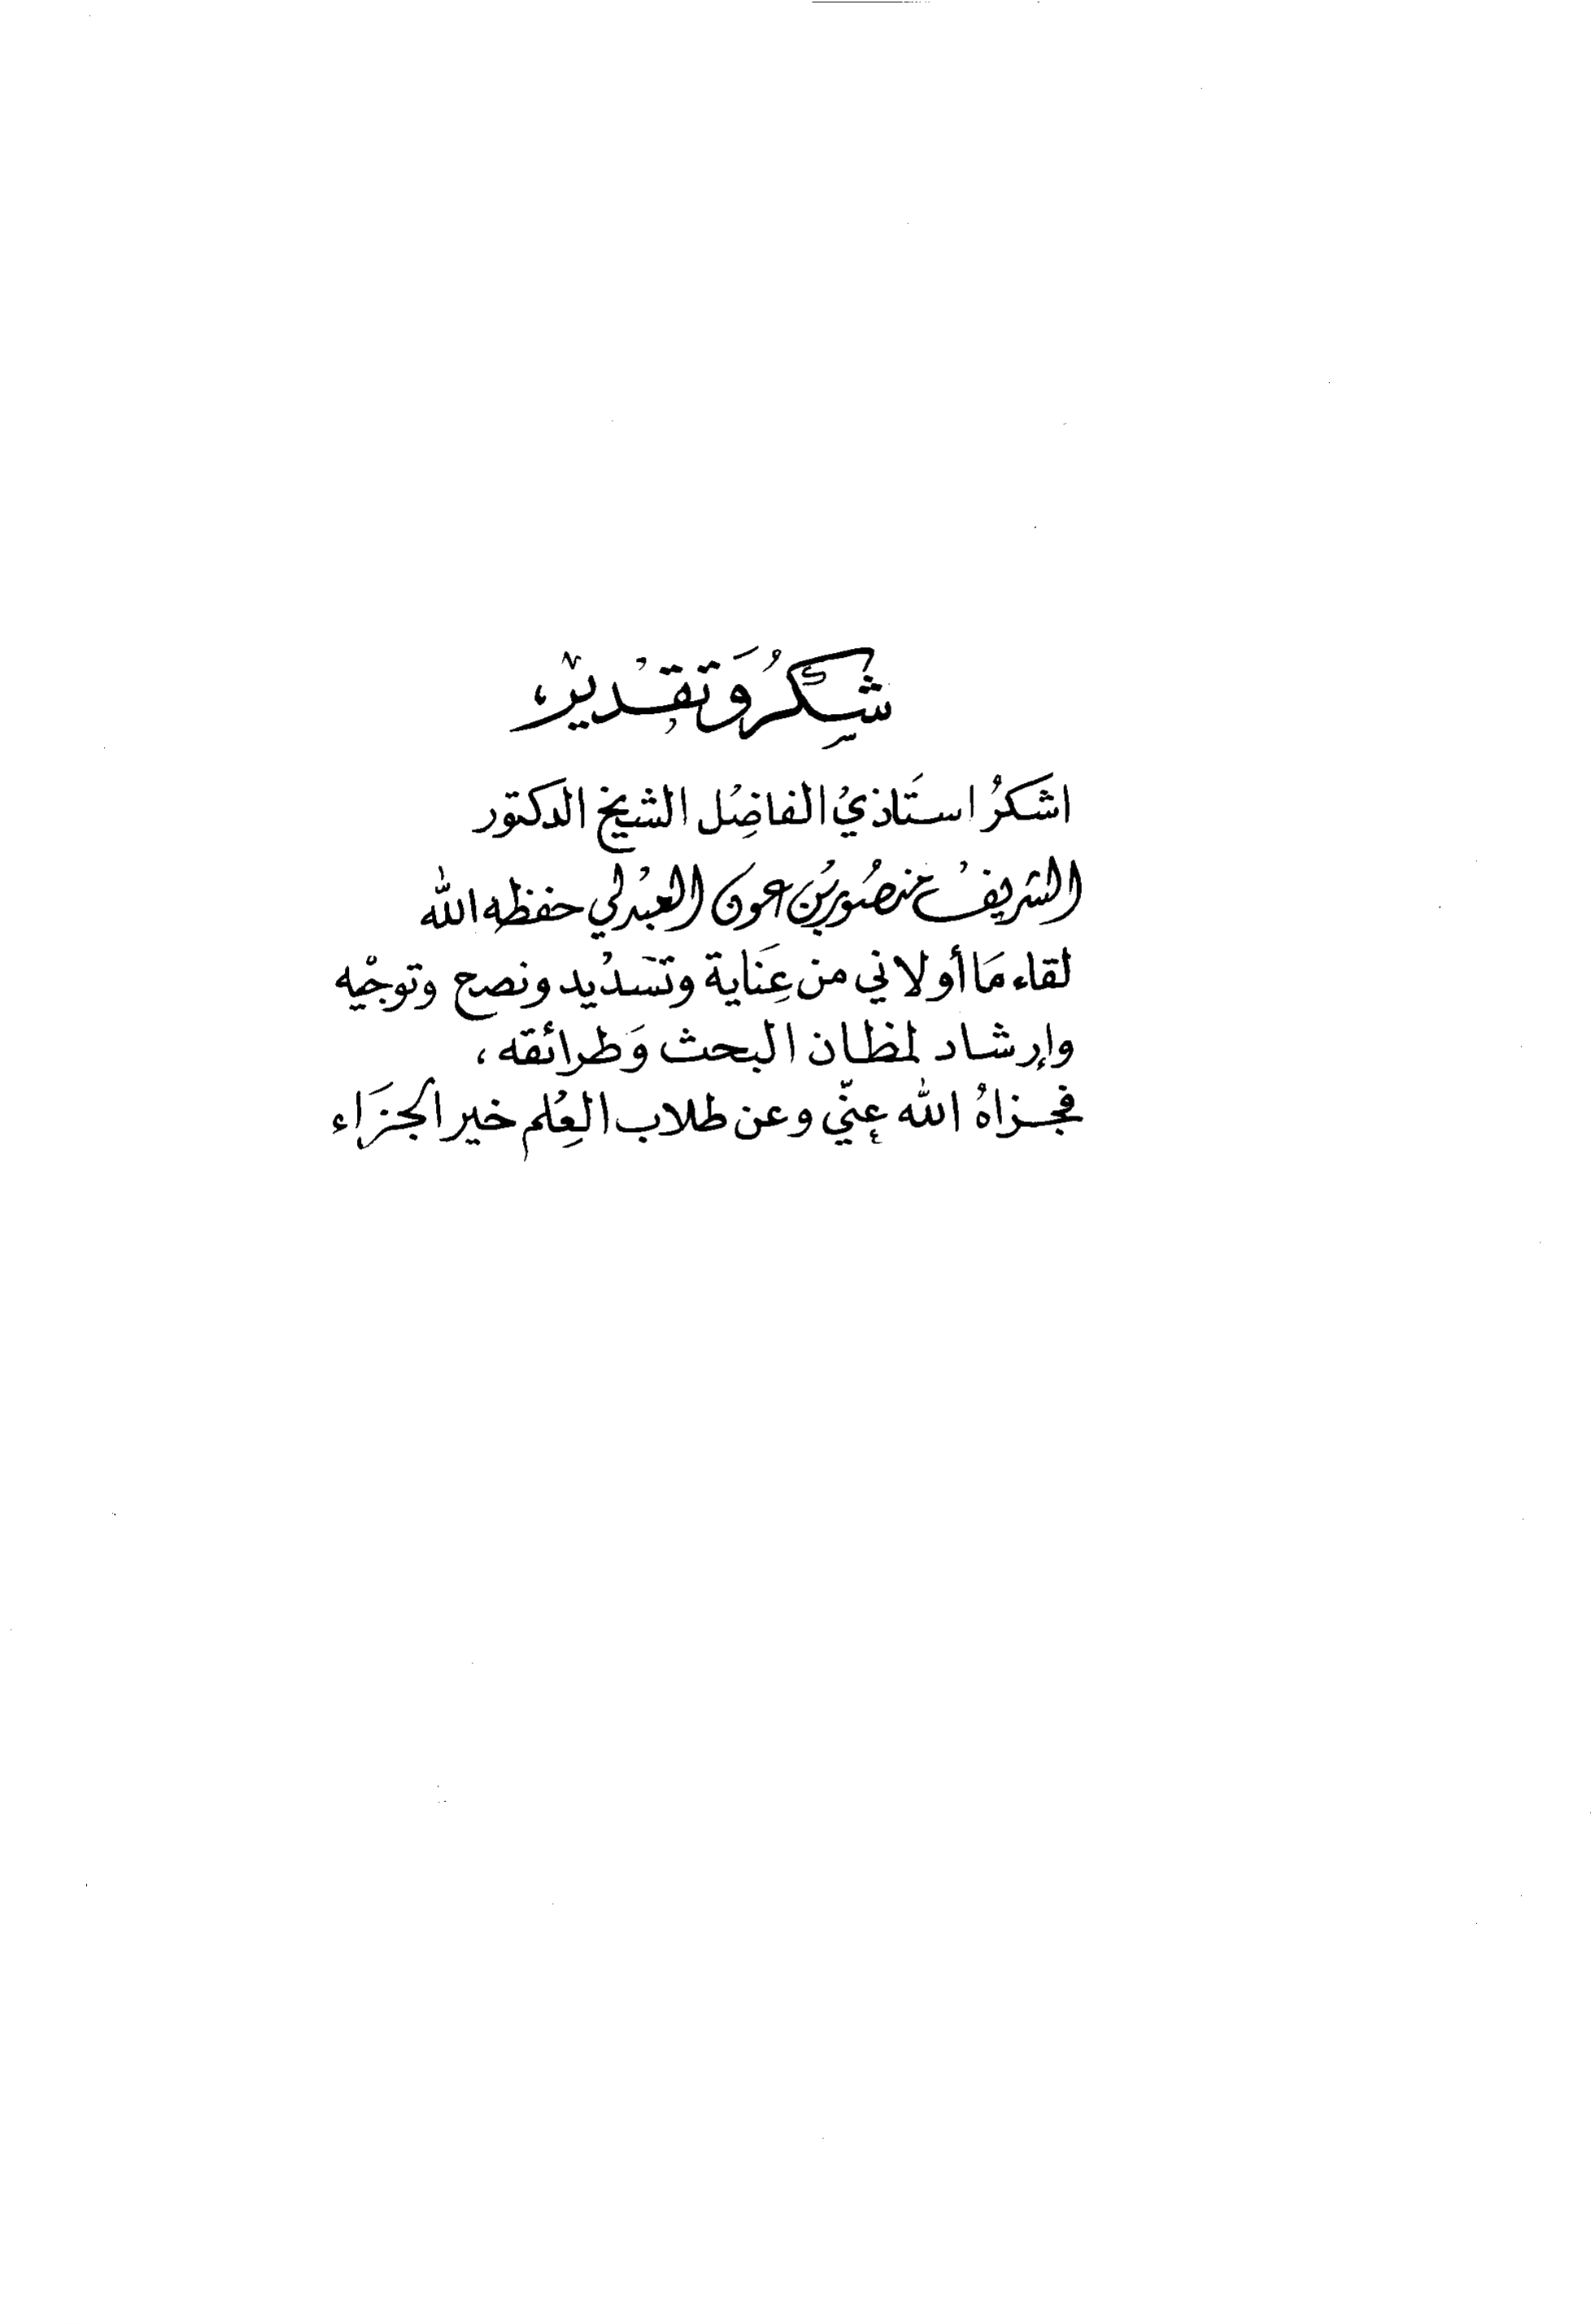 شكر وتقدير
اشكر استاذي الفاضل الشيخ الدكتور
الشريف منصور بن عون العبدلي حفظه الله
لقاء ما أولاني من عناية وتسديد ونصح وتوجيه
وإرشاد لمظان البحث وطرائقه،
فجزاه الله عني وعن طلاب العلم خير الجزاء